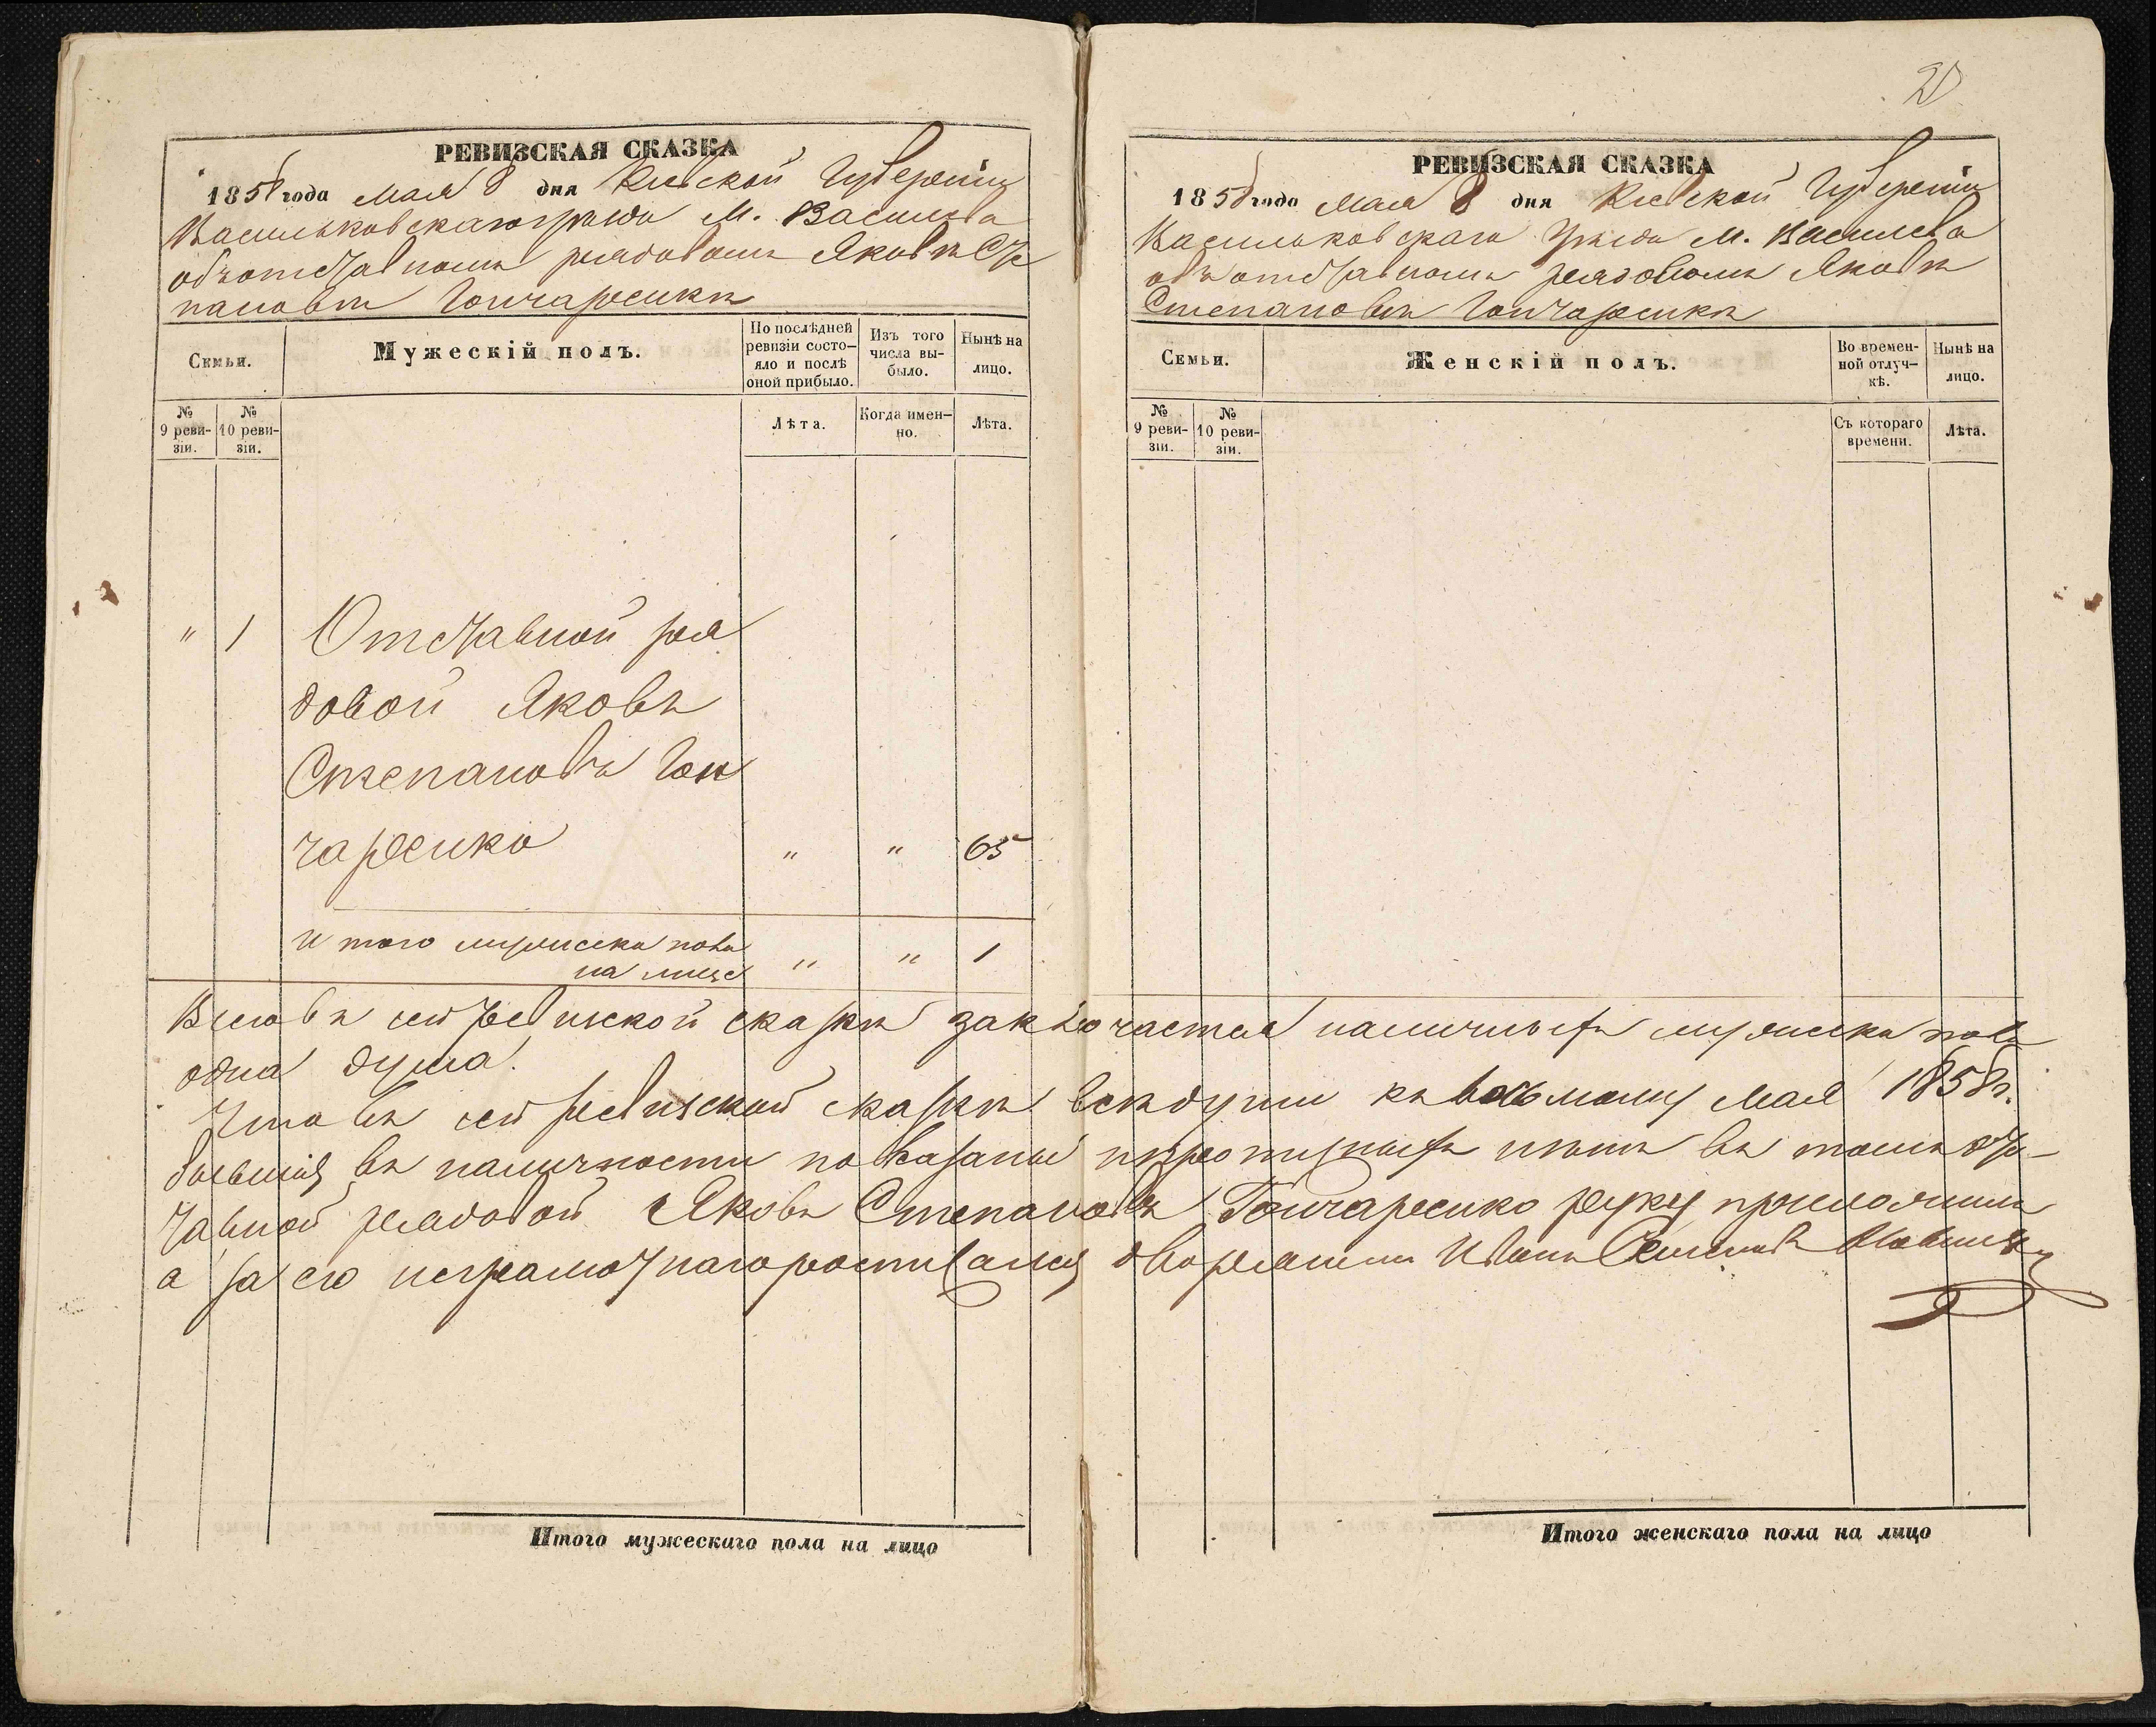 РЕВИЗСКАЯ СКАЗКА
1858 года мая 8 дня Кіевской Губерніи
Васильковскаго уѣзда М. Василева
объ отставномъ рядовомъ Яковѣ Сте
пановѣ Гончаренкѣ
Семьи.
Мужескій полъ.
По послѣдней
ревизіи состо-
яло и послѣ
оной прибыло.
Изъ того
числа вы-
было.
Нынѣ на
лицо.
№
9 реви-
зіи.
№
10 реви-
зіи.
Лѣта.
Когда имен-
но.
Лѣта.
" 1 Отставной ря
довой Яковъ
Степановъ Гон
чаренко " " 65
И того мужеска пола
на лице " " 1
2
РЕВИЗСКАЯ СКАЗКА
1858 года мая 8 дня Кіевской Губерніи
Васильковскаго Уѣзда М. Василева
объ отставномъ рядовомъ Яковѣ
Степановѣ Гончаренкѣ
Семьи.
Женскій полъ.
Во времен-
ной отлуч-
кѣ.
Нынѣ на
лицо.
№
9 реви-
зіи.
№
10 реви-
зіи.
Съ котораго
времени.
Лѣта.
Всего въ сей ревизской сказкѣ заключается наличныхъ мужеска пола
одна душа.
Что въ сей ревизской сказкѣ всѣ души къ восьмому мая 1858 г.
бывшія въ наличности показаны и прописныхъ нѣтъ въ томъ от-
тавной рядовой Яковъ Степановъ Гончаренко руку приложилъ
а за его неграмотнаго росписался дворянинъ Иванъ Семеновъ
Итого мужескаго пола на лицо
Итого женскаго пола на лицо